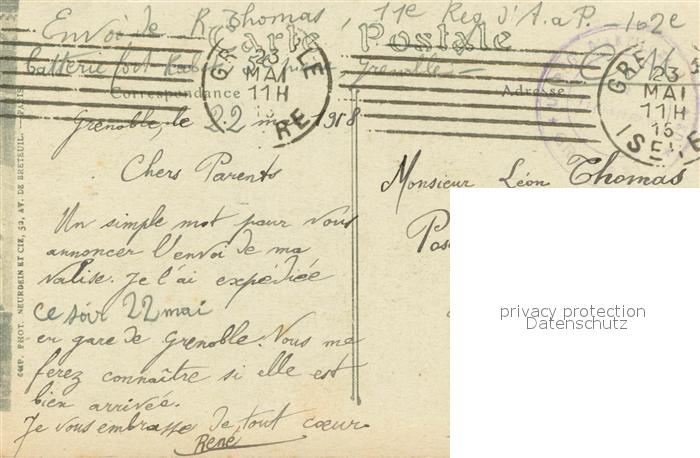 Envoi de R. Thomas, 11e Reg d'A. a P. - 102e
batterie fort Rabot Grenoble -
Carte Postale
Correspondance
Adresse
GRENOBLE
23
MAI
11H
ISERE
GRE
23
MAI
11H
15
ISERE
Grenoble, le 22 mai 1918
Chers Parents
Un simple mot pour vous
annoncer l'envoi de ma
valise. Je l'ai expédiée
ce soir 22 mai
en gare de Grenoble. Vous me
ferez connaître si elle est
bien arrivée.
Je vous embrasse de tout cœur
René
Monsieur Léon Thomas
Pos
privacy protection
Datenschutz
IMP. PHOT. NEURDEIN ET CIE, 52, AV. DE BRETEUIL. - PARIS